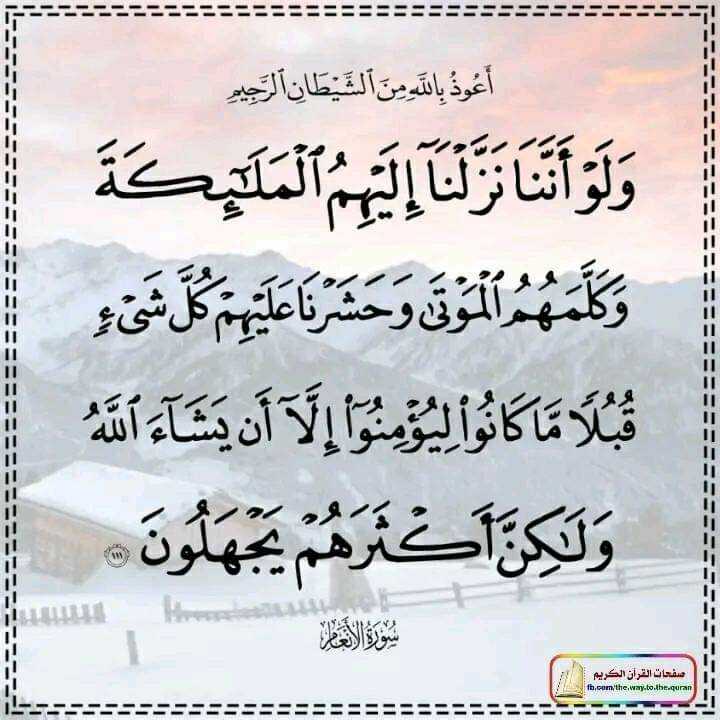 أَعُوذُ بِاللَّهِ مِنَ ٱلشَّيْطَانِ ٱلرَّجِيمِ
وَلَوْ أَنَّنَا نَزَّلْنَآ إِلَيْهِمُ ٱلْمَلَٰٓئِكَةَ
وَكَلَّمَهُمُ ٱلْمَوْتَىٰ وَحَشَرْنَا عَلَيْهِمْ كُلَّ شَىْءٍ
قُبُلًا مَّا كَانُوا۟ لِيُؤْمِنُوٓا۟ إِلَّآ أَن يَشَآءَ ٱللَّهُ
وَلَٰكِنَّ أَكْثَرَهُمْ يَجْهَلُونَ ١١١
سُورَةُ الأَنْعَامِ
صفحات القرآن الكريم
fb.com/the.way.to.the.quran